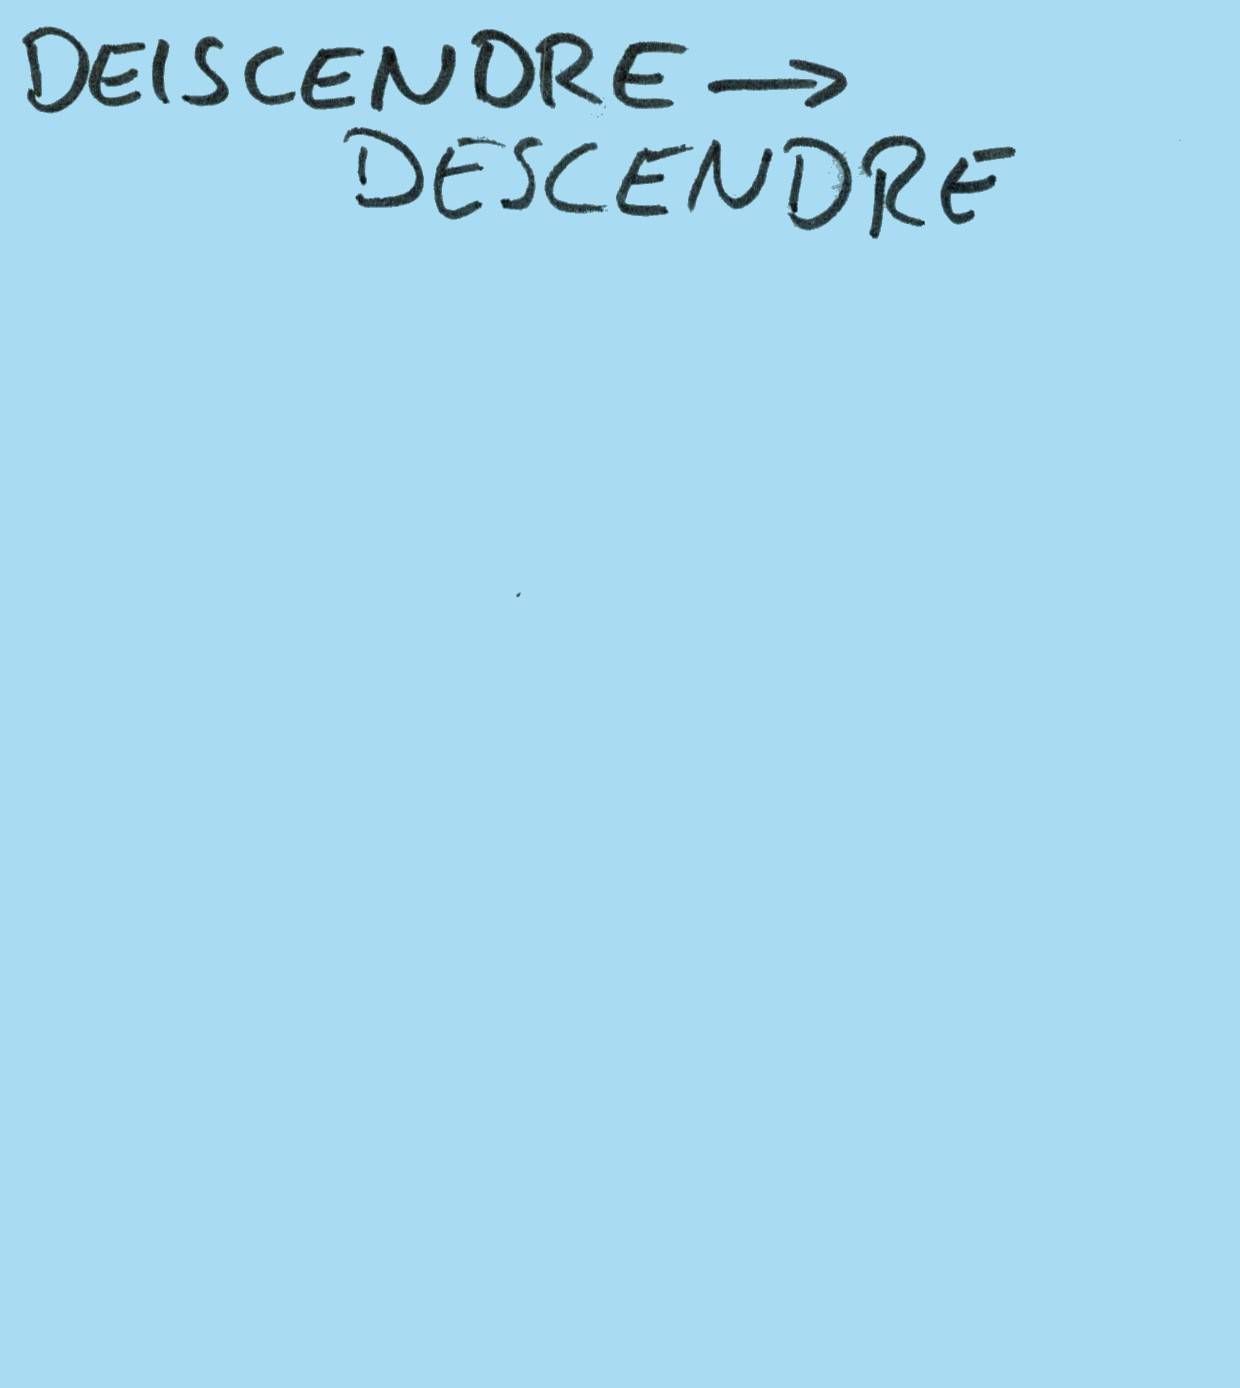 DEISCENDRE →
DESCENDRE